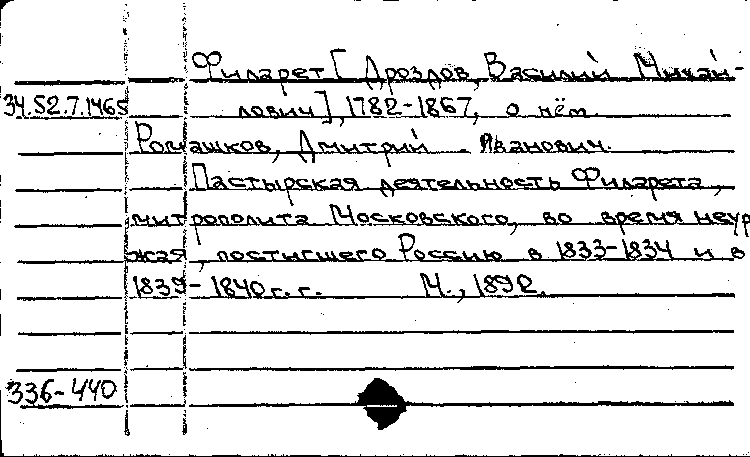 Филарет [Дроздов, Василий Михай-
34.52.7.1465 лович], 1782-1867, о нём.
Ромашков, Дмитрий Иванович.
Пастырская деятельность Филарета,
митрополита Московского, во время неуро
жая, постигшего Россию в 1833-1834 и в
1839-1840 г.г. М., 1892.
336-440